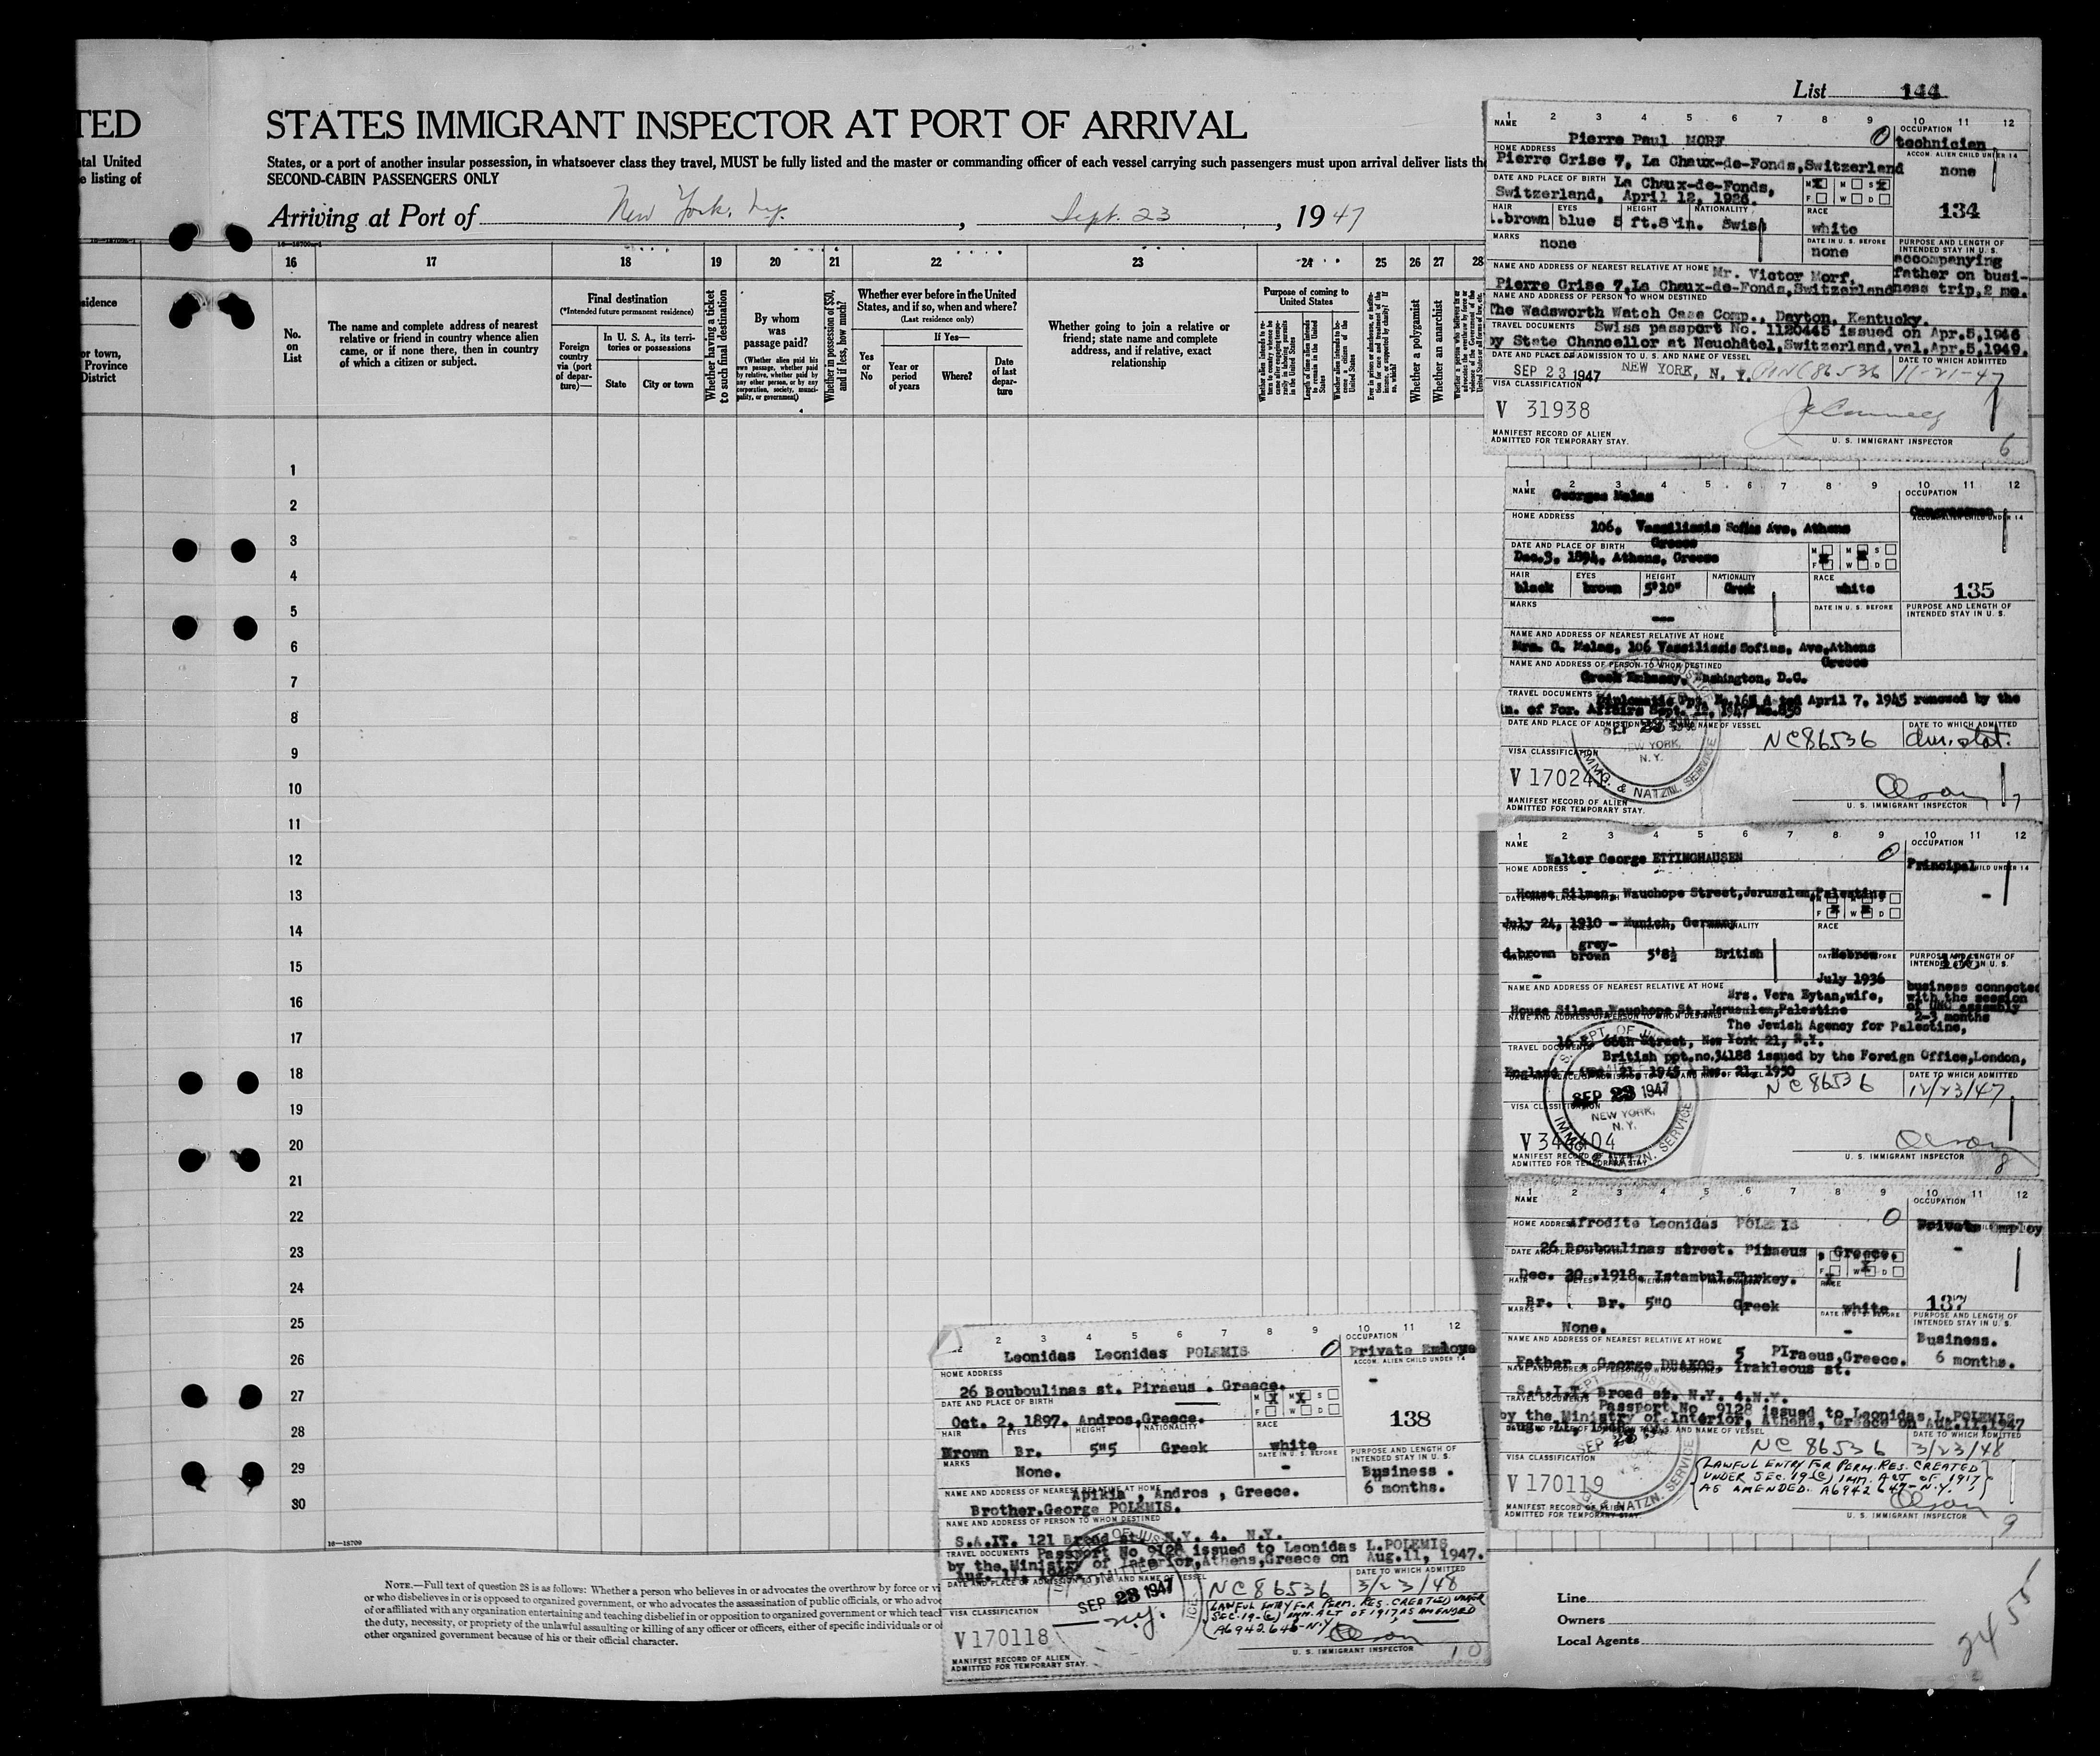 List 144
TED
STATES IMMIGRANT INSPECTOR AT PORT OF ARRIVAL
ntal United
e listing of
States, or a port of another insular possession, in whatsoever class they travel, MUST be fully listed and the master or commanding officer of each vessel carrying such passengers must upon arrival deliver lists the
SECOND-CABIN PASSENGERS ONLY
Arriving at Port of New York, N.Y., Sept. 23, 1947
16 17 18 19 20 21 22 23 24 25 26 27 28
sidence
or town,
Province
District
No.
on
List
The name and complete address of nearest
relative or friend in country whence alien
came, or if none there, then in country
of which a citizen or subject.
Final destination
(*Intended future permanent residence)
Foreign
country
via (port
of depar-
ture)—
In U. S. A., its terri-
tories or possessions
State
City or town
Whether having a ticket
to such final destination
By whom
was
passage paid?
(Whether alien paid his
own passage, whether paid
by relative, whether paid by
any other person, or by any
corporation, society, munici-
pality, or government)
Whether in possession of $50,
and if less, how much?
Whether ever before in the United
States, and if so, when and where?
(Last residence only)
Yes
or
No
If Yes—
Year or
period
of years
Where?
Date
of last
depar-
ture
Whether going to join a relative or
friend; state name and complete
address, and if relative, exact
relationship
Purpose of coming to
United States
Whether a polygamist
Whether an anarchist
1
2
3
4
5
6
7
8
9
10
11
12
13
14
15
16
17
18
19
20
21
22
23
24
25
26
27
28
29
30
16—18709
NOTE.—Full text of question 28 is as follows: Whether a person who believes in or advocates the overthrow by force or vi
or who disbelieves in or is opposed to organized government, or who advocates the assassination of public officials, or who advoc
of or affiliated with any organization entertaining and teaching disbelief in or opposition to organized government or which teach
the duty, necessity, or propriety of the unlawful assaulting or killing of any officer or officers, either of specific individuals or of
other organized government because of his or their official character.
1 2 3 4 5 6 7 8 9 10 11 12
NAME
Pierre Paul MORF
OCCUPATION
technician
HOME ADDRESS
Pierre Grise 7, La Chaux-de-Fonds,Switzerland
ACCOM. ALIEN CHILD UNDER 14
none
DATE AND PLACE OF BIRTH La Chaux-de-Fonds,
Switzerland, April 12, 1926.
M M S
F W D
134
HAIR EYES HEIGHT NATIONALITY RACE
l.brown blue 5 ft.8 in. Swiss white
MARKS
none
DATE IN U. S. BEFORE
none
PURPOSE AND LENGTH OF
INTENDED STAY IN U. S.
accompanying
father on busi-
ness trip,2 mo.
NAME AND ADDRESS OF NEAREST RELATIVE AT HOME Mr. Victor Morf,
Pierre Grise 7,La Chaux-de-Fonds,Switzerland
NAME AND ADDRESS OF PERSON TO WHOM DESTINED
The Wadsworth Watch Case Comp., Dayton, Kentucky.
TRAVEL DOCUMENTS Swiss passport No. 1120445 issued on Apr.5,1946
by State Chancellor at Neuchâtel,Switzerland,val.Apr.5,1949.
DATE AND PLACE OF ADMISSION TO U. S. AND NAME OF VESSEL
DATE TO WHICH ADMITTED
SEP 23 1947 NEW YORK, N. Y. NC86536 11-21-47
VISA CLASSIFICATION
V 31938
MANIFEST RECORD OF ALIEN
ADMITTED FOR TEMPORARY STAY.
U. S. IMMIGRANT INSPECTOR
6
1 2 3 4 5 6 7 8 9 10 11 12
NAME Georges Melas
OCCUPATION
HOME ADDRESS
106, Vassilissis Sofias Ave, Athens
Greece
DATE AND PLACE OF BIRTH
Dec.3, 1894, Athens, Greece
M M S
F W D
HAIR EYES HEIGHT NATIONALITY RACE
black brown 5'10" Greek white
135
MARKS
---
DATE IN U. S. BEFORE
PURPOSE AND LENGTH OF
INTENDED STAY IN U. S.
NAME AND ADDRESS OF NEAREST RELATIVE AT HOME
Mrs. G. Melas, 106 Vassilissis Sofias, Ave,Athens
Greece
NAME AND ADDRESS OF PERSON TO WHOM DESTINED
Greek Embassy, Washington, D.C.
TRAVEL DOCUMENTS Diplomatic April 7, 1945 renewed by the
of For. Affairs Sept. 1947
DATE AND PLACE OF ADMISSION TO U. S. AND NAME OF VESSEL
DATE TO WHICH ADMITTED
SEP 23 NC86536 dur. stat.
NEW YORK,
N. Y.
IMMG. & NATZN. SERVICE
VISA CLASSIFICATION
V 17024
MANIFEST RECORD OF ALIEN
ADMITTED FOR TEMPORARY STAY.
Olson
U. S. IMMIGRANT INSPECTOR
7
1 2 3 4 5 6 7 8 9 10 11 12
NAME
Walter George ETTINGHAUSEN
OCCUPATION
Principal
HOME ADDRESS
House Silman, Wauchope Street,Jerusalem,Palestine
July 24, 1910 - Munich, Germany
RACE
d.brown grey-brown 5'8½ British Hebrew
136
July 1936
PURPOSE AND LENGTH OF
INTENDED STAY IN U. S.
business connected
with the session
of UNO assembly
2-3 months
NAME AND ADDRESS OF NEAREST RELATIVE AT HOME Mrs. Vera Eytan,wife,
House Silman,Wauchope St.,Jerusalem,Palestine
NAME AND ADDRESS OF PERSON TO WHOM DESTINED
The Jewish Agency for Palestine,
16 E. 66th Street, New York 21, N.Y.
TRAVEL DOCUMENTS
British ppt.no.34188 issued by the Foreign Office,London,
England - Dec. 21, 1950
DATE TO WHICH ADMITTED
NC86536 12/23/47
SEP 23 1947
NEW YORK,
N. Y.
IMMG. & NATZN. SERVICE
VISA CLASSIFICATION
MANIFEST RECORD OF ALIEN
ADMITTED FOR TEMPORARY STAY.
Olson
U. S. IMMIGRANT INSPECTOR
8
1 2 3 4 5 6 7 8 9 10 11 12
NAME
OCCUPATION
HOME ADDRESS Afrodite Leonidas POLEMIS
Private Employ
26 Bouboulinas street. Piraeus , Greece.
Dec. 30 .1918. Istambul Turkey.
Br. Br. 5"0 Greek white
137
MARKS
None.
DATE IN U. S. BEFORE
-
PURPOSE AND LENGTH OF
INTENDED STAY IN U. S.
Business.
6 months.
NAME AND ADDRESS OF NEAREST RELATIVE AT HOME 5 PIraeus,Greece.
Father , George DRAKOS. Irakleous st.
S.A.I.T. Broad st. N.Y. 4.N.Y.
TRAVEL DOCUMENTS Passport No. 9128 issued to Leonidas L.POLEMIS
by the Ministry of Interior, Athens, Greece on Aug.11,1947
Aug. 11, 1948.
DATE TO WHICH ADMITTED
SEP 23 NC 86536 3/23/48
VISA CLASSIFICATION
V 170119
(LAWFUL ENTRY FOR PERM. RES. CREATED
UNDER SEC. 19(c) IMM. ACT OF 1917
AS AMENDED. A6942647-N.Y.)
MANIFEST RECORD OF ALIEN
ADMITTED FOR TEMPORARY STAY.
Olson
U. S. IMMIGRANT INSPECTOR
9
2 3 4 5 6 7 8 9 10 11 12
Leonidas Leonidas POLEMIS
OCCUPATION
Private Employe
HOME ADDRESS
26 Bouboulinas st. Piraeus . Greece.
ACCOM. ALIEN CHILD UNDER 14
-
DATE AND PLACE OF BIRTH
M M S
F W D
Oct. 2, 1897. Andros,Greece.
138
HAIR EYES HEIGHT NATIONALITY RACE
Brown Br. 5"5 Greek white
MARKS
None.
DATE IN U. S. BEFORE
-
PURPOSE AND LENGTH OF
INTENDED STAY IN U. S.
Business .
6 months.
NAME AND ADDRESS OF NEAREST RELATIVE AT HOME Apikia , Andros , Greece.
Brother.George POLEMIS.
NAME AND ADDRESS OF PERSON TO WHOM DESTINED
S.A.IT. 121 Broad st. N.Y. 4. N.Y.
TRAVEL DOCUMENTS Passport No 9128 issued to Leonidas L.POLEMIS
by the Ministry of Interior,Athens,Greece on Aug.11, 1947.
Aug. 11, 1948.
DATE AND PLACE OF ADMISSION TO U. S. AND NAME OF VESSEL
DATE TO WHICH ADMITTED
SEP 23 1947 NC86536 3/23/48
N.Y.
VISA CLASSIFICATION
V 170118
(LAWFUL ENTRY FOR PERM. RES. CREATED UNDER
SEC. 19-(c) IMM. ACT OF 1917 AS AMENDED
A6942646-N.Y.)
MANIFEST RECORD OF ALIEN
ADMITTED FOR TEMPORARY STAY.
Olson
U. S. IMMIGRANT INSPECTOR
10
Line
Owners
Local Agents